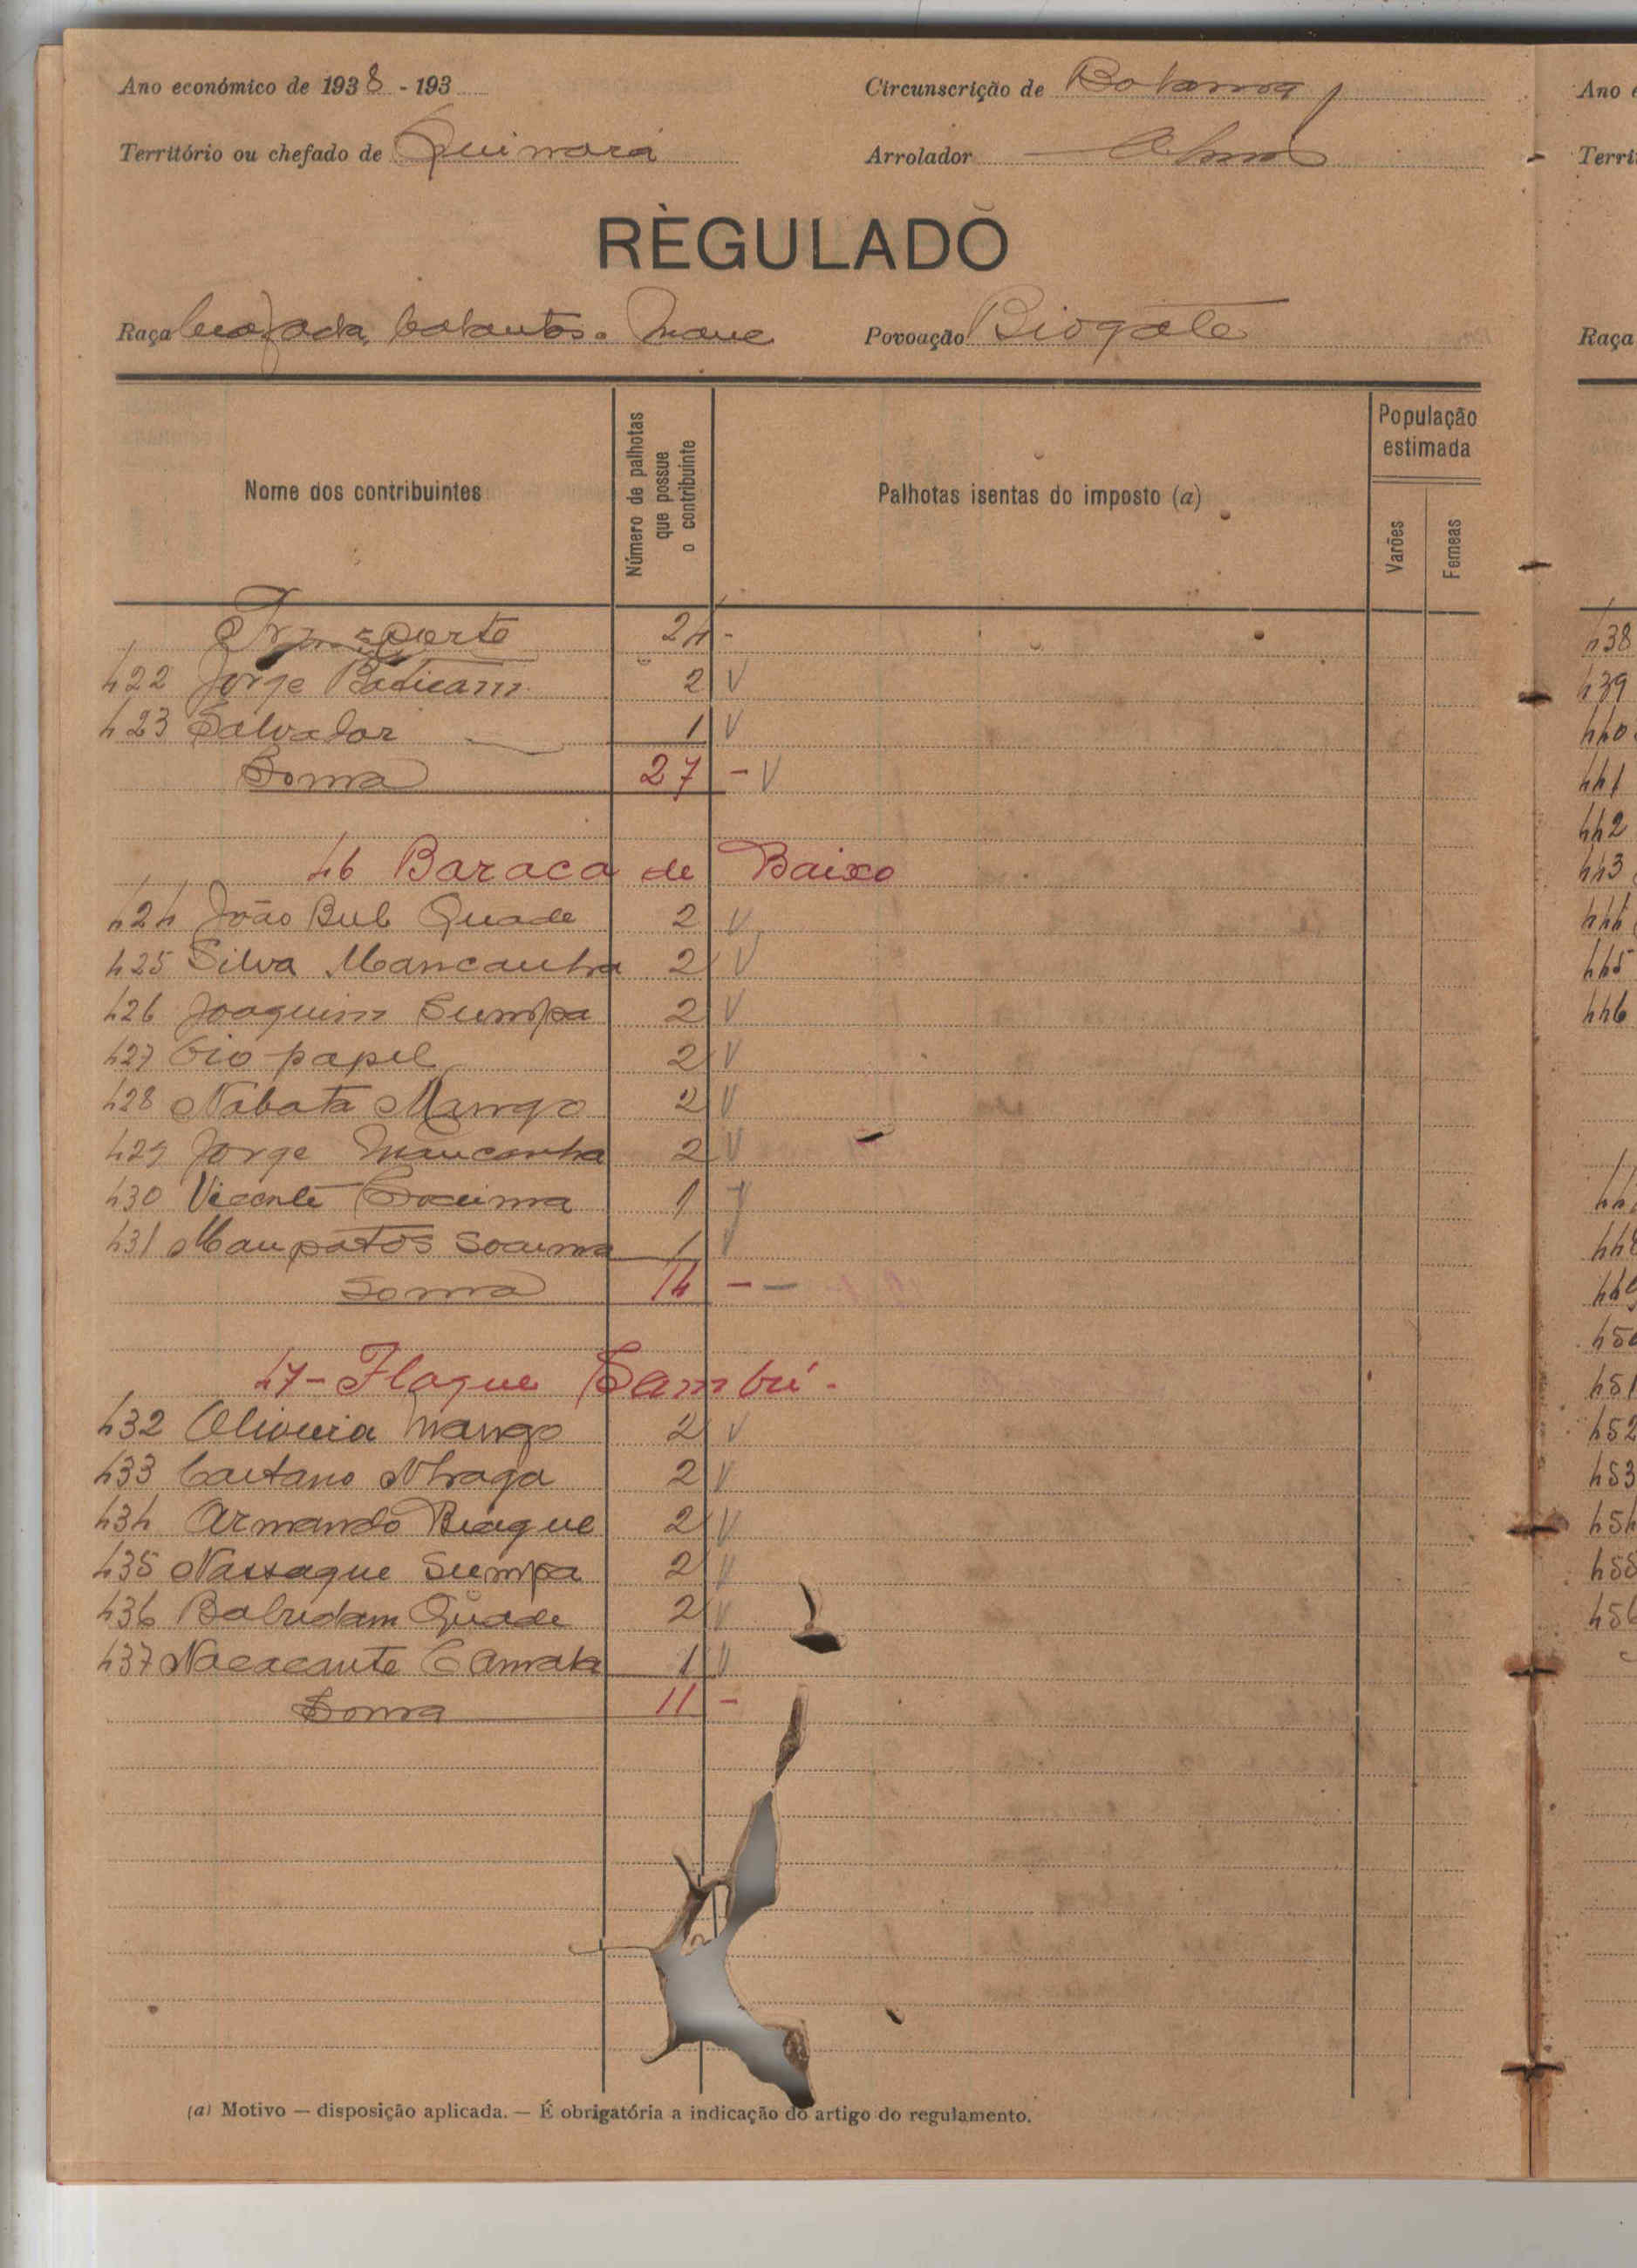 Ano económico de 1938 - 193
Circunscrição de
Território ou chefado de Quinará
Arrolador
REGULADO
Raça Beafada, balantas. Mane
Povoação Biogate
Nome dos contribuintes
Número de palhotas que possue o contribuinte
Palhotas isentas do imposto (a)
População estimada
Varões
Femeas
Transporte 24 -
422 Jorge 2 V
423 Salvador 1 V
Soma 27 - V
46 Baraca de Baixo
424 João Bul Quade 2 V
425 Silva Mancanha 2 V
426 Joaquim Sumpa 2 V
427 Oio papel 2 V
428 Nabata Mango 2 V
429 Jorge Mancanha 2 V
430 Vicente 1 V
431 Maupatos 1 V
Soma 14 - -
47 - Flaque Sambú -
432 Oliveira Mango 2 V
433 Caetano Nhaga 2 V
434 Armando Biague 2 V
435 Nassaque Sumpa 2 V
436 Babridam Quade 2 V
437 Nacacante Camata 1 V
Soma 11 -
(a) Motivo — disposição aplicada. — É obrigatória a indicação do artigo do regulamento.
Ano
Raça
438
439
440
441
442
443
444
445
446
451
452
453
454
455